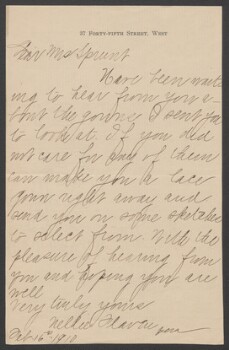 37 Forty-Fifth Street, West
Dear Mrs Sprunt
Have been wait
ing to hear from you a-
bout the gowns I sent for
to look at If you did
not care for any of them
can make you a lace
gown right away and
send you on some sketches
to select from. With the
pleasure of hearing from
you and hoping you are
well
Very truly yours
Nellie
Feb 16th 1910